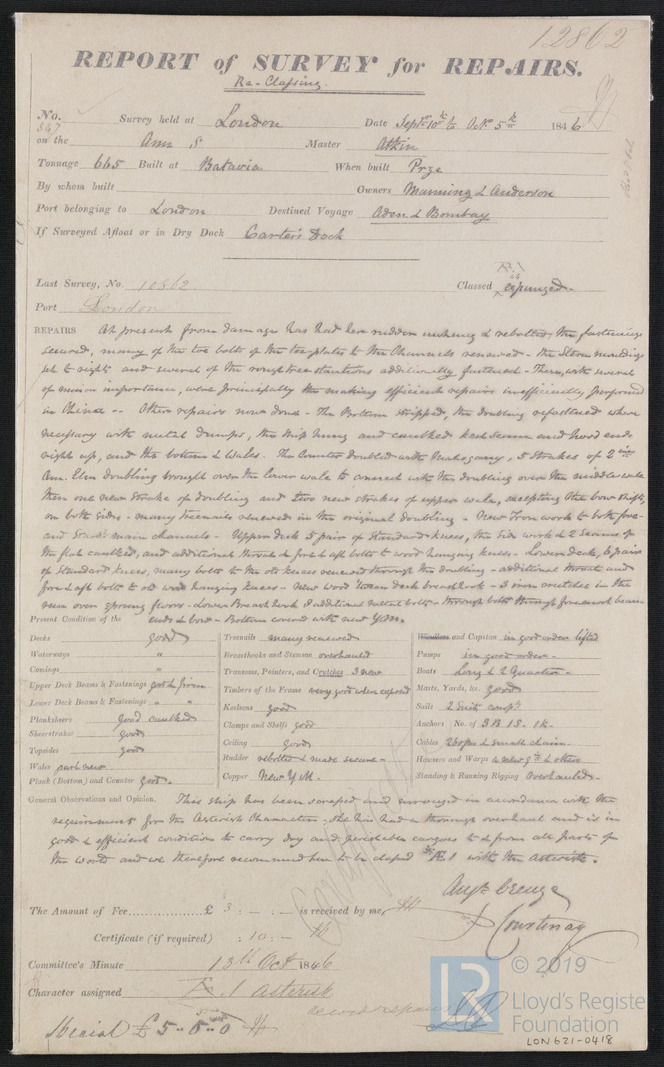 12862
REPORT of SURVEY for REPAIRS.
Re-Classing.
No. 547 Survey held at London Date Sept 10th to Octr 5th 1846
on the Ann S Master Atkin
Tonnage 665 Built at Batavia When built Prze
By whom built Owners Manning & Anderson
Port belonging to London Destined Voyage Aden & Bombay
If Surveyed Afloat or in Dry Dock Carter's Dock
Last Survey, No. 10862 Classed expunged
Port London
REPAIRS At present from damage has had her rudder unhung & rebolted, the fastenings
secured, many of the toe bolts of the toe-plates to the Channels renewed - the Stern mouldings
set to rights and several of the roughtree stantions additionally fastened - These, with several
of minor importance, were principally the making efficient repairs inefficiently performed
in China -- Other repairs now done - The Bottom stripped, the doubling refastened where
necessary with metal dumps, the ship hung and caulked keel seam and hood ends
right up, and the bottom & Wales. The Counter doubled with Mahogany, 5 strakes of 2 ins
Am. Elm doubling brought over the lower wale to connect with the doubling over the middle wale
then one new strake of doubling and two new strakes of upper wale, excepting the bow shifts,
on both sides - many treenails renewed in the original doubling - New Iron work to both fore
and main channels - Upper deck 5 pair of Standard knees, the side work & 2 Seams of
the flat caulked, and additional throat & fore & aft bolts to wood hanging knees - Lower deck, 6 pairs
of Standard knees, many bolts to the old knees renewed through the doubling - additional throat and
fore & aft bolts to old wood hanging knees - New wood 'tween deck breasthook - 3 iron crutches in the
run over sprung floors - Lower Breasthook 8 additional metal bolts - through bolts through foremost beam
ends & bow - Bottom covered with new Y.M.
Present Condition of the
Decks good
Waterways "
Comings "
Upper Deck Beams & Fastenings good & firm
Lower Deck Beams & Fastenings " "
Planksheers good caulked
Sheerstrakes good
Topsides good
Wales part new
Plank (Bottom) and Counter good.
Treenails many renewed
Breasthooks and Stemson overhauled
Transoms, Pointers, and Crutches 3 new
Timbers of the Frame very good when exposed
Keelsons good
Clamps and Shelfs good
Ceiling good
Rudder rebolted & made secure -
Copper New Y.M.
Windlass and Capston in good order lifted
Pumps in good order -
Boats Long & 2 Quarter -
Masts, Yards, &c. good
Sails 2 Suits
Anchors No. of 3 B. 1 S. 1 K.
Cables 2 & small chain -
Hawsers and Warps & others
Standing & Running Rigging Overhauled -
General Observations and Opinion. This ship has been scraped and surveyed in accordance with the
requirements for the Asterisk Character - she has had a thorough overhaul and is in
good & efficient condition to carry dry and perishable cargoes to & from all parts of
the World and we therefore recommend her to be classed Æ 1 with the asterisk.
Augn Creuze
Courtenay
The Amount of Fee............... £ 3 : - : - is received by me,
Certificate (if required) : 10 : -
Certificate
Committee's Minute 13th Oct 1846
Character assigned Æ 1 asterisk
Special £ 5 - 5 - 0
© 2019
Lloyd's Register
Foundation
LON621-0418